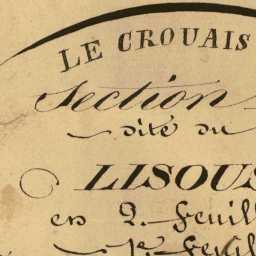 LE CROUAIS
Section
dite du
LISOUS
en 2. feuill
1e. feuill